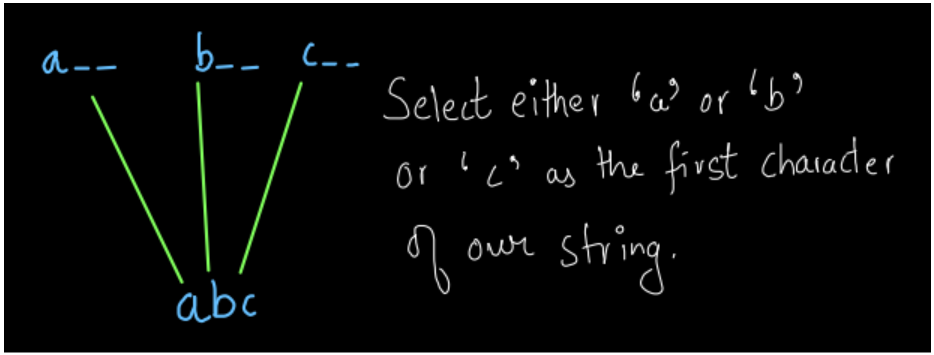 a__ b__ c__
Select either 'a' or 'b'
or 'c' as the first character
of our string.
abc